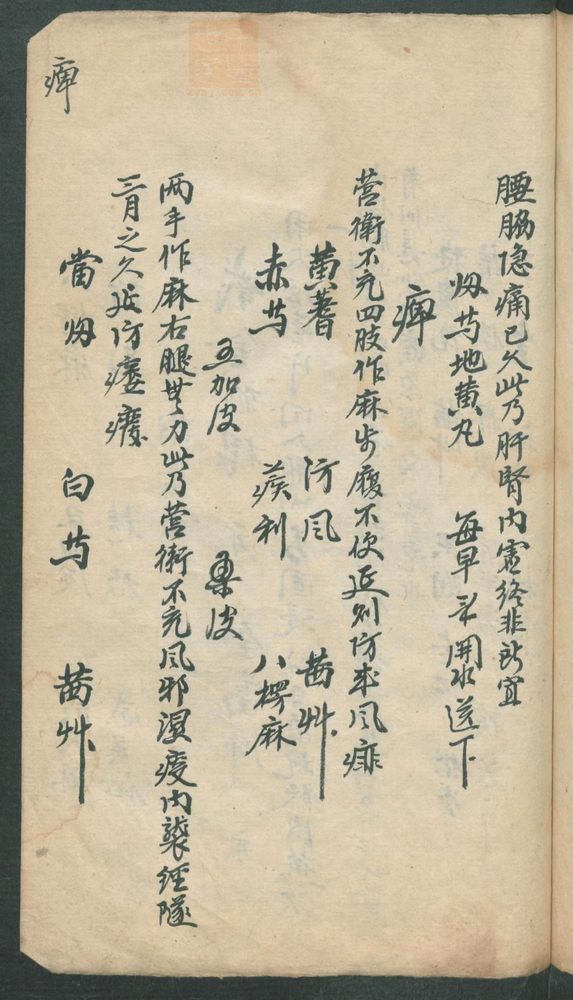 腰脇隐痛已久此乃肝腎内虚终非所宜
归芍地黄丸 每早 開水送下
痺
营衛不充四肢作麻步履不便延则防成风痱
黄蓍 防风 茜艸
赤芍 蒺利 八楞麻
五加皮 桑皮
两手作麻右腿無力此乃营衛不充风邪湿痰内襲经隧
三月之久延防痿癈
當归 白芍 茜艸
痺